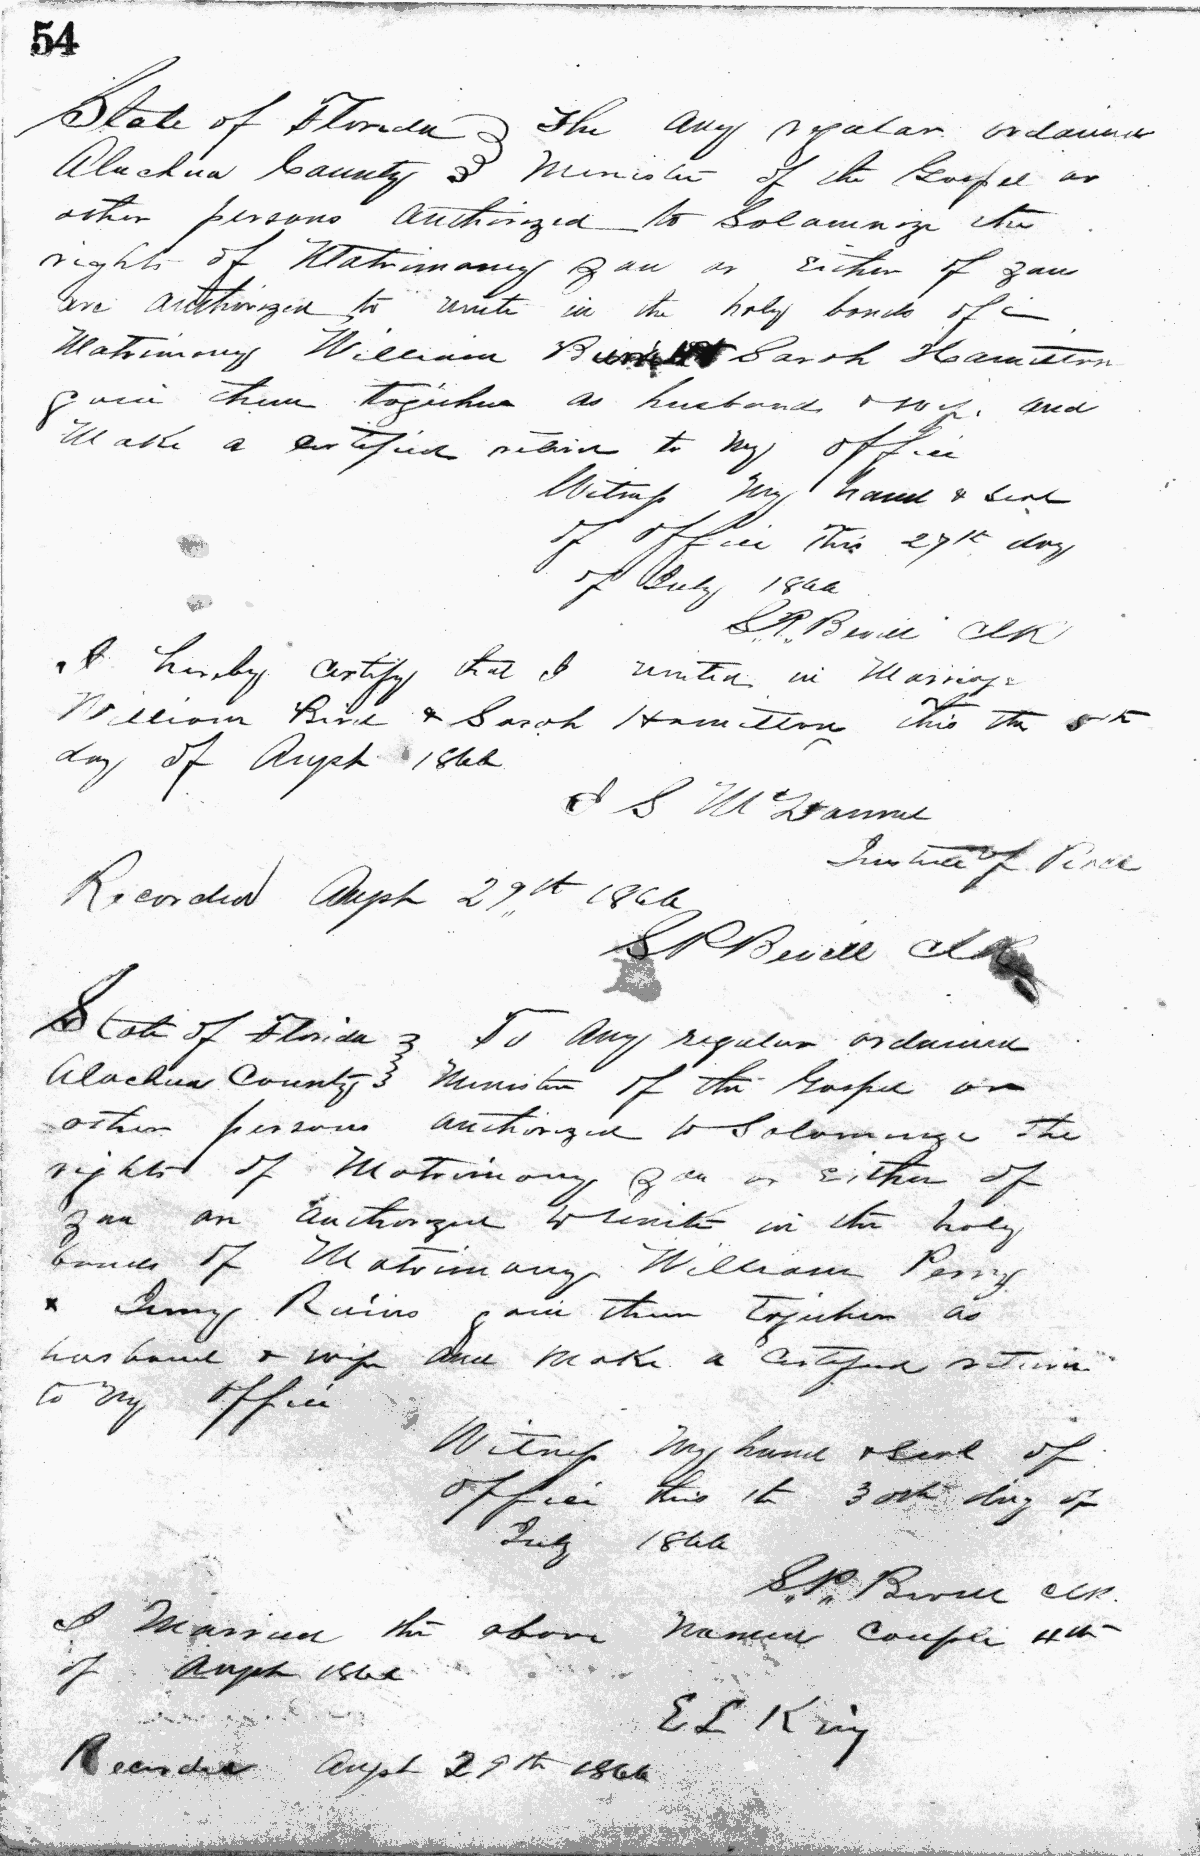 54
State of Florida } The any regular ordained
Alachua County } Minister of the Gospel or
other persons authorized to Solamnize the
rights of Matrimony you or Either of you
are authorized to unite in the holy bonds of
Matrimony William Sarah Hamilton
join them together as husband & wife and
Make a certified return to my office
Witness my hand & seal
of office this 27th day
of July 1866
S.P. Bevill Clk
I hereby certify that I united in Marriage
William Bird & Sarah Hamilton this the 5th
day of Augst 1866
I S McDannel
Justice of Peace
Recorded Augst 29th 1866
S P Bevill Clk
State of Florida } To Any regular ordained
Alachua County } Minister of the Gospel or
other persons authorized to Solamnize the
rights of Matrimony you or Either of
you are authorized to Unite in the holy
bonds of Matrimony William Perry
& Jinny Rains join them together as
husband & wife and Make a Certified return
to my office
Witness My hand & Seal of
office this th 30th day of
July 1866
S.P. Bevill Clk.
I Married the above Named Couple 4th
of Augst 1866
E L King
Recorded Augst 29th 1866